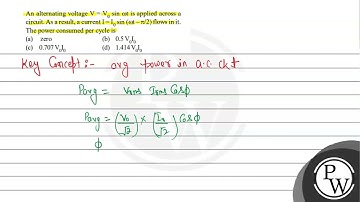 An alternating voltage V = V₀ sin ωt is applied across a
circuit. As a result, a current I = I₀ sin (ωt − π/2) flows in it.
The power consumed per cycle is
(a) zero (b) 0.5 V₀I₀
(c) 0.707 V₀I₀ (d) 1.414 V₀I₀
Key Concept :- avg power in a.c. ckt
Pavg = Vrms Irms Cosϕ
Pavg = (V₀/√2) × (I₀/√2) Cosϕ
ϕ
PW